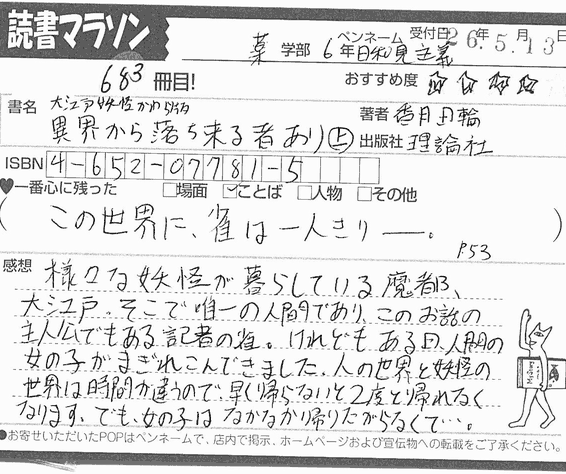 読書マラソン
薬 学部 6年 ペンネーム 日和見主義 受付日 26.5.13日
年 月
683 冊目! おすすめ度 ☆☆☆☆
書名 大江戸妖怪かわら版
異界から落ち来る者あり 上
著者 香月日輪
出版社 理論社
ISBN 4-652-07781-5
♥一番心に残った □場面 ☑ことば □人物 □その他
(この世界に、雀は一人きり――。)
P53
感想 様々な妖怪が暮らしている魔都、
大江戸。そこで唯一の人間であり、このお話の
主人公でもある記者の雀。けれどもある日、人間の
女の子がまぎれこんできました。人の世界と妖怪の
世界は時間が違うので、早く帰らないと2度と帰れなく
なります。でも、女の子はなかなか帰りたがらなくて…。
●お寄せいただいたPOPはペンネームで、店内で掲示、ホームページおよび宣伝物への転載をご了承ください。